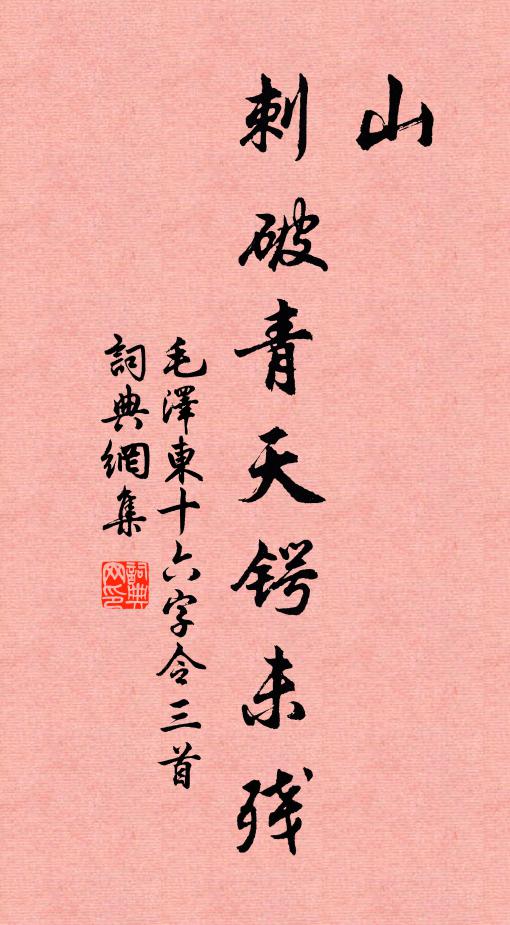 山
刺破青天锷未残
毛澤東十六字令三首
詞典網集
詞典網印